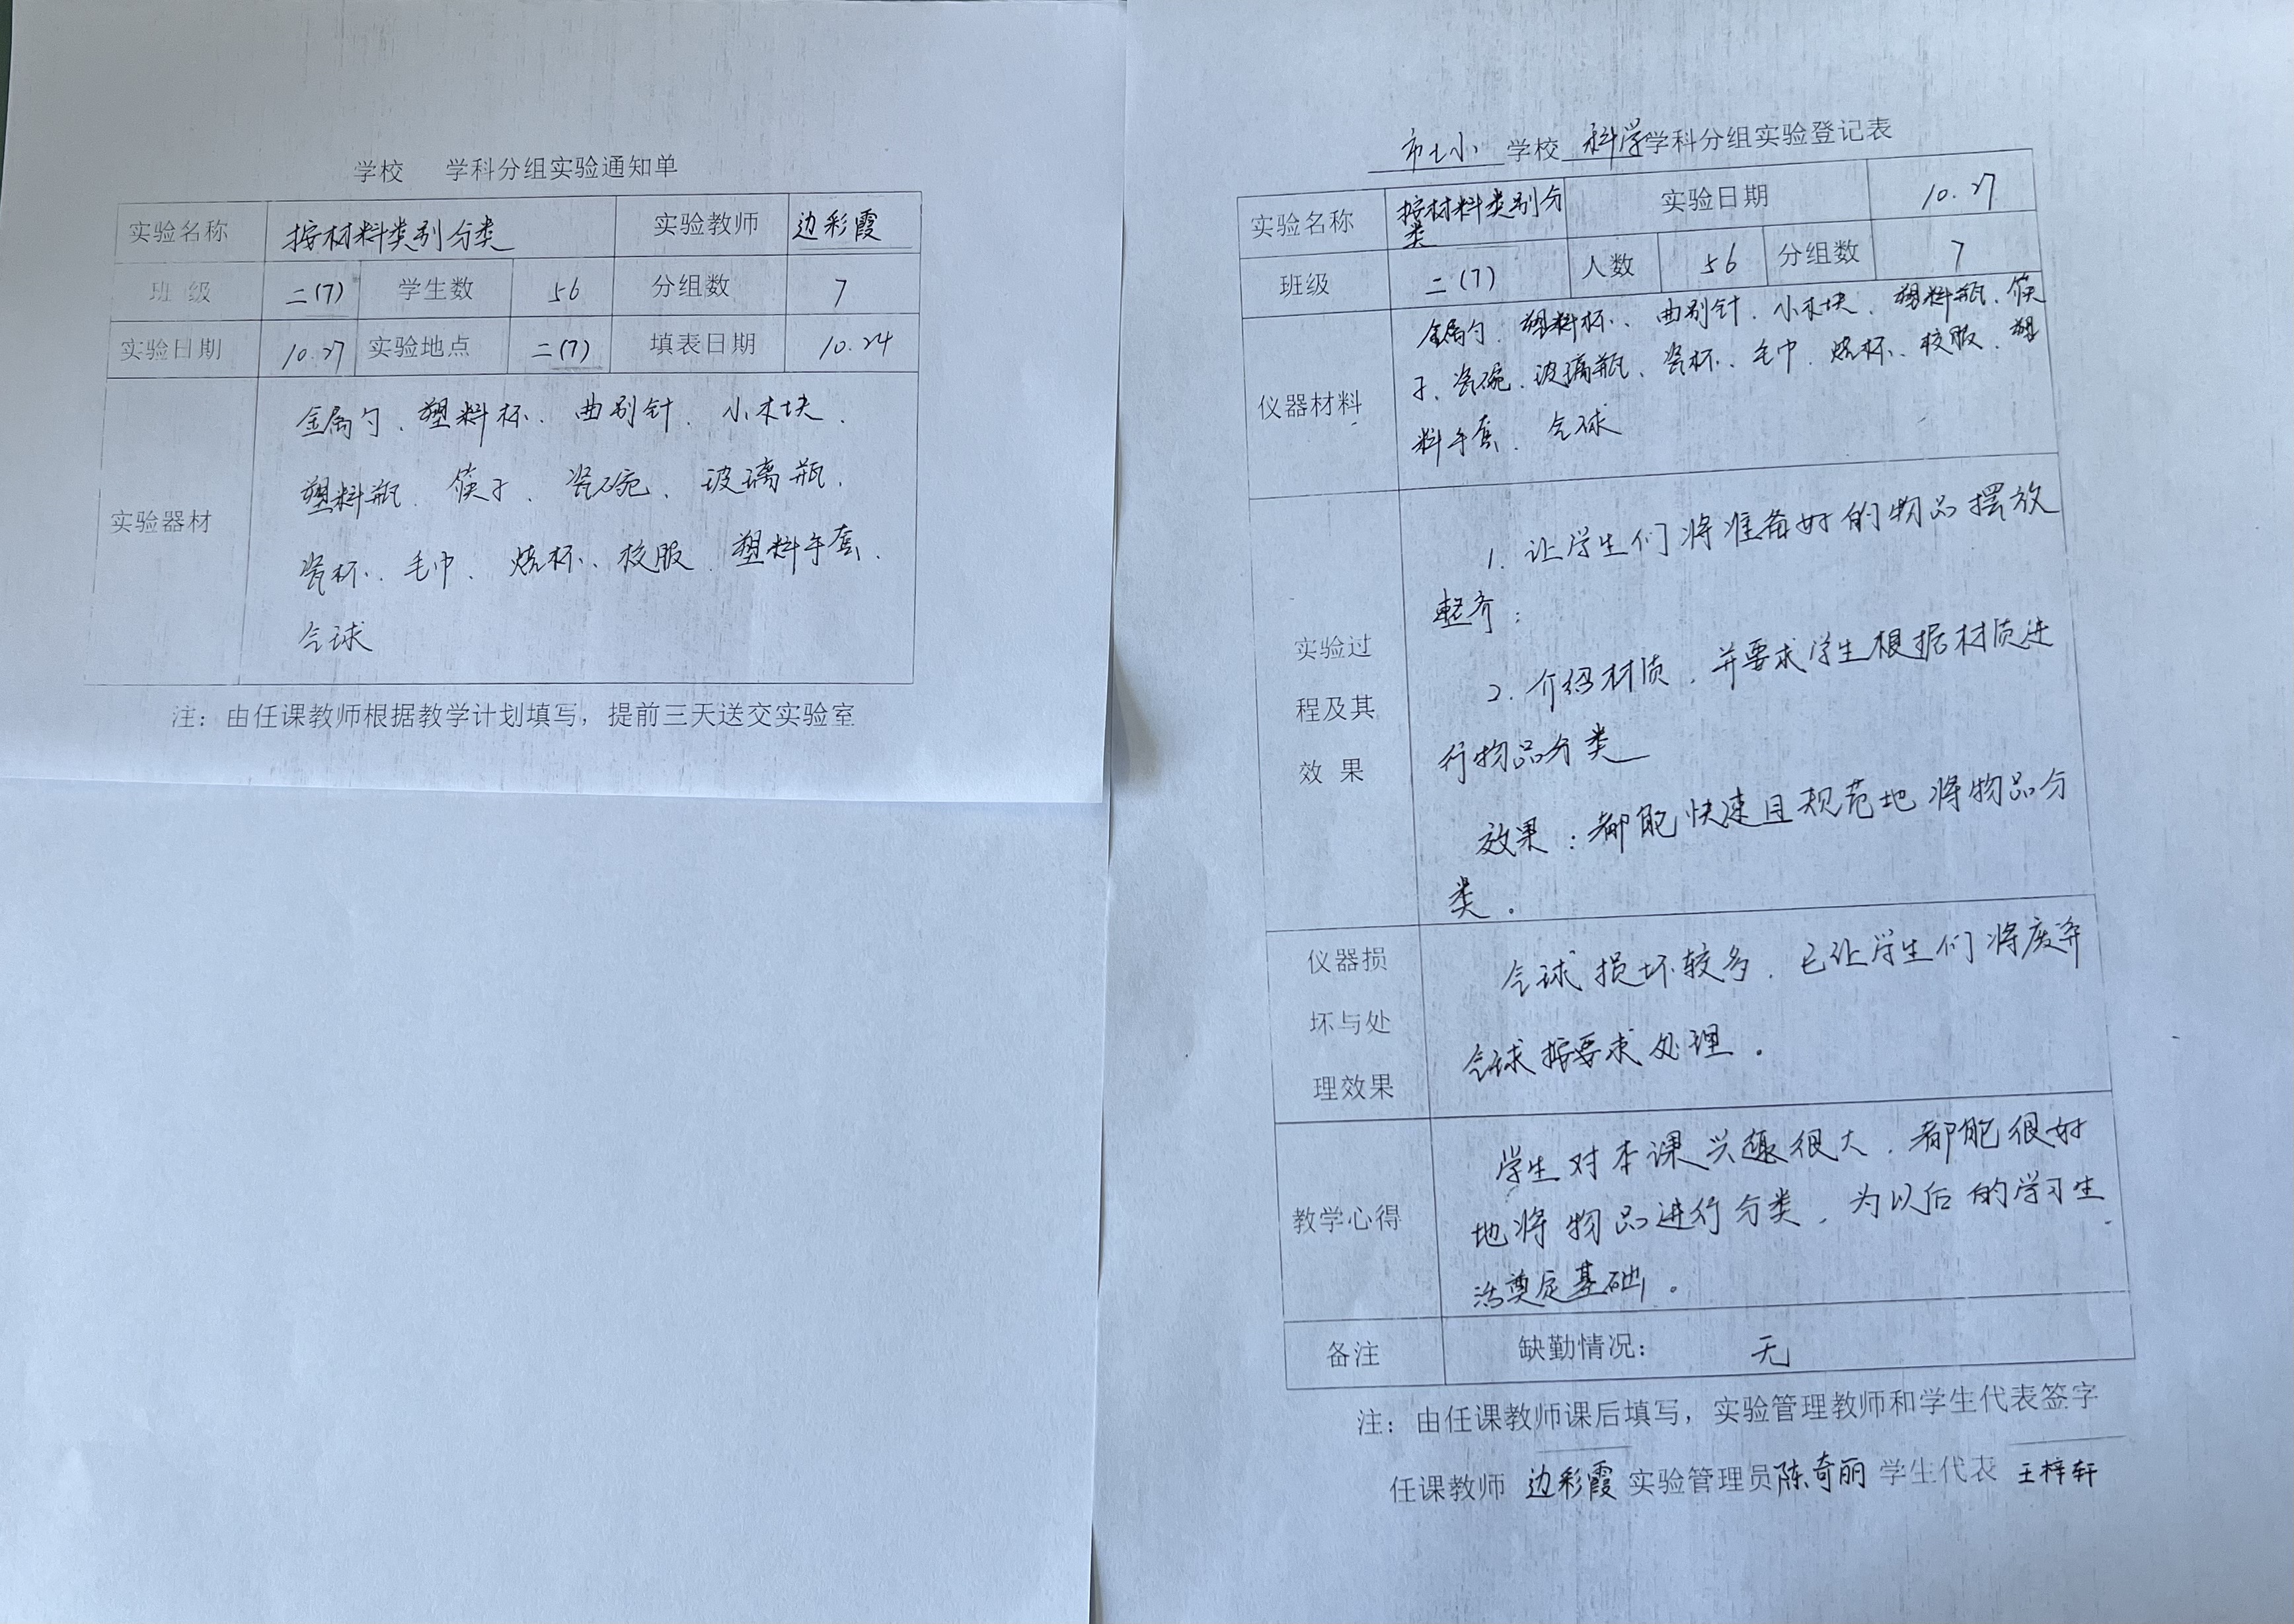 学校 学科分组实验通知单
实验名称 按材料类别分类 实验教师 边彩霞
班级 二(7) 学生数 56 分组数 7
实验日期 10.27 实验地点 二(7) 填表日期 10.24
实验器材
金属勺、塑料杯、曲别针、小木块、
塑料瓶、筷子、瓷碗、玻璃瓶、
瓷杯、毛巾、烧杯、校服、塑料手套、
气球
注：由任课教师根据教学计划填写，提前三天送交实验室
学校 科学学科分组实验登记表
实验名称 按材料类别分
类
实验日期 10.27
班级 二(7) 人数 56 分组数 7
仪器材料
金属勺、塑料杯、曲别针、小木块、塑料瓶、筷
子、瓷碗、玻璃瓶、瓷杯、毛巾、烧杯、校服、塑
料手套、气球
实验过
程及其
效 果
1. 让学生们将准备好的物品摆放
整齐；
2. 介绍材质，并要求学生根据材质进
行物品分类
效果：都能快速且规范地将物品分
类。
仪器损
坏与处
理效果
气球损坏较多，已让学生们将废弃
气球按要求处理。
教学心得
学生对本课兴趣很大，都能很好
地将物品进行分类，为以后的学习生
活奠定基础。
备注 缺勤情况： 无
注：由任课教师课后填写，实验管理教师和学生代表签字
任课教师 边彩霞 实验管理员 陈奇丽 学生代表 王梓轩